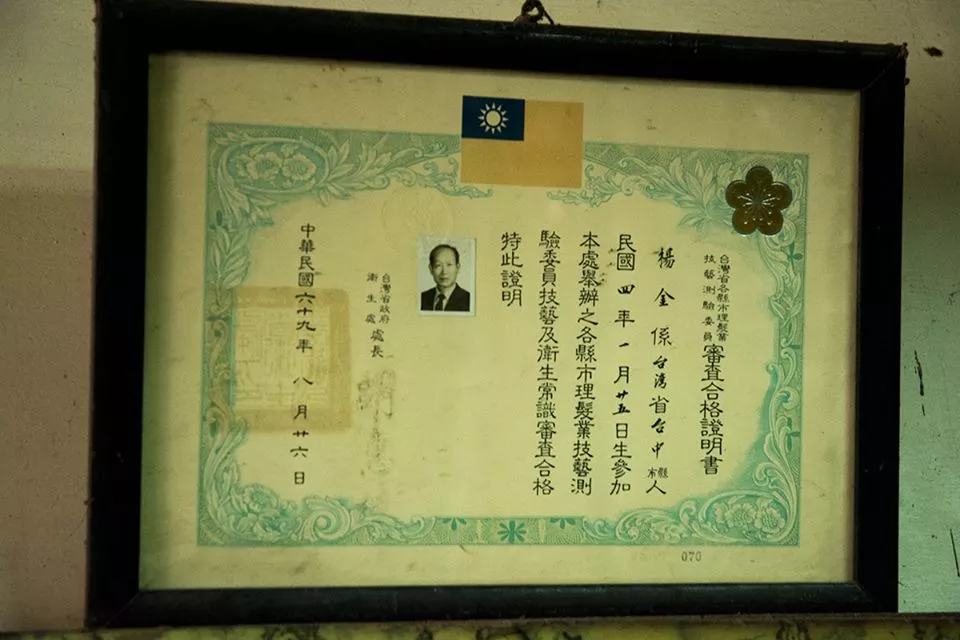 台灣省各縣市理髮業
技藝測驗委員
審查合格證明書
楊金係台灣省台中縣市人
民國四年一月廿五日生參加
本處舉辦之各縣市理髮業技藝測
驗委員技藝及衛生常識審查合格
特此證明
台灣省政府
衛生處
處長
中華民國六十九年八月廿六日
070